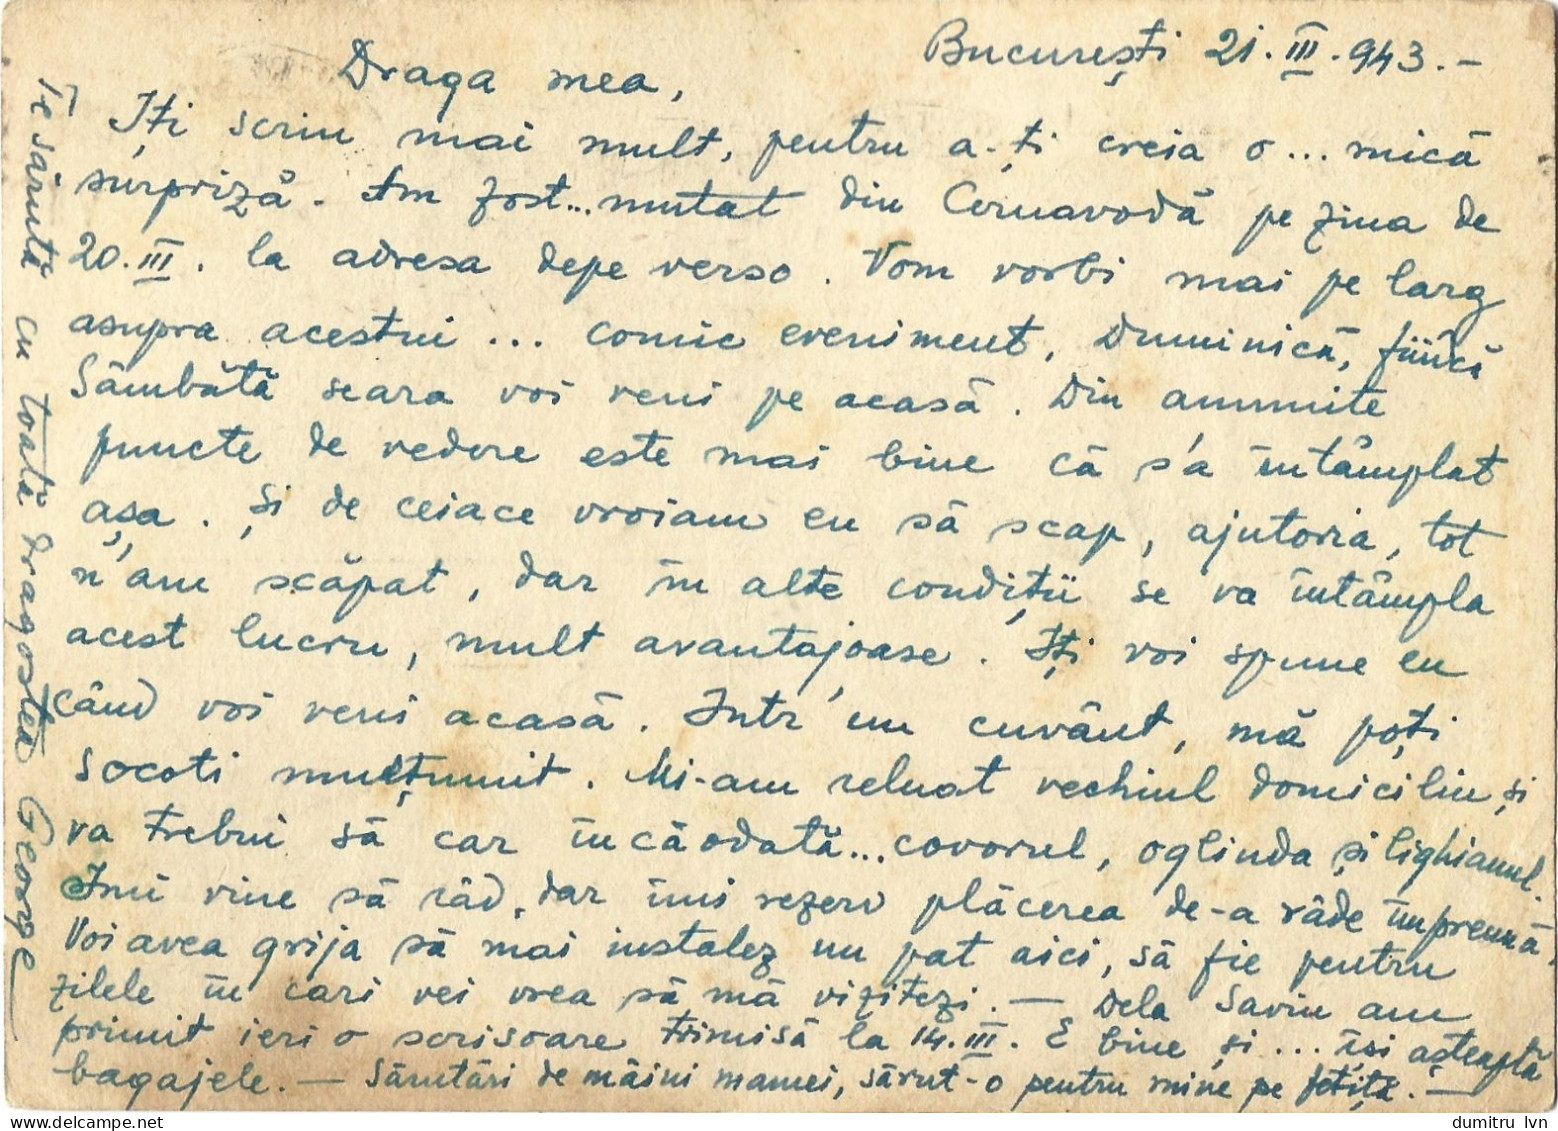 București 21.III.943.-
Draga mea,
Iți scriu mai mult, pentru a-ți creia o... mică
surpriză. Am fost...mutat din Cernavodă pe ziua de
20.III. la adresa depe verso. Vom vorbi mai pe larg
asupra acestui ... comic eveniment, Duminică, fiincă
Sâmbătă seara voi veni pe acasă. Din anumite
puncte de vedere este mai bine că s'a întâmplat
așa. Și de ceiace vroiam eu să scap, ajutoria, tot
n'am scăpat, dar în alte condiții se va întâmpla
acest lucru, mult avantajoase. Iți voi spune eu
când voi veni acasă. Intr'un cuvânt, mă poți
socoti mulțumit. Mi-am reluat vechiul domiciliu și
va trebui să car încăodată...covorul, oglinda și lighianul.
Imi vine să râd, dar îmi rezerv plăcerea de-a râde împreună.
Voi avea grija să mai instalez un pat aici, să fie pentru
zilele în cari vei vrea să mă vizitezi. — Dela Saviu am
primit ieri o scrisoare trimisă la 14.III. E bine și ... își așteaptă
bagajele. — Sărutări de mâini mamei, sărut-o pentru mine pe fetiță. —
Te sărută cu toată dragostea George
dumitru_lvn